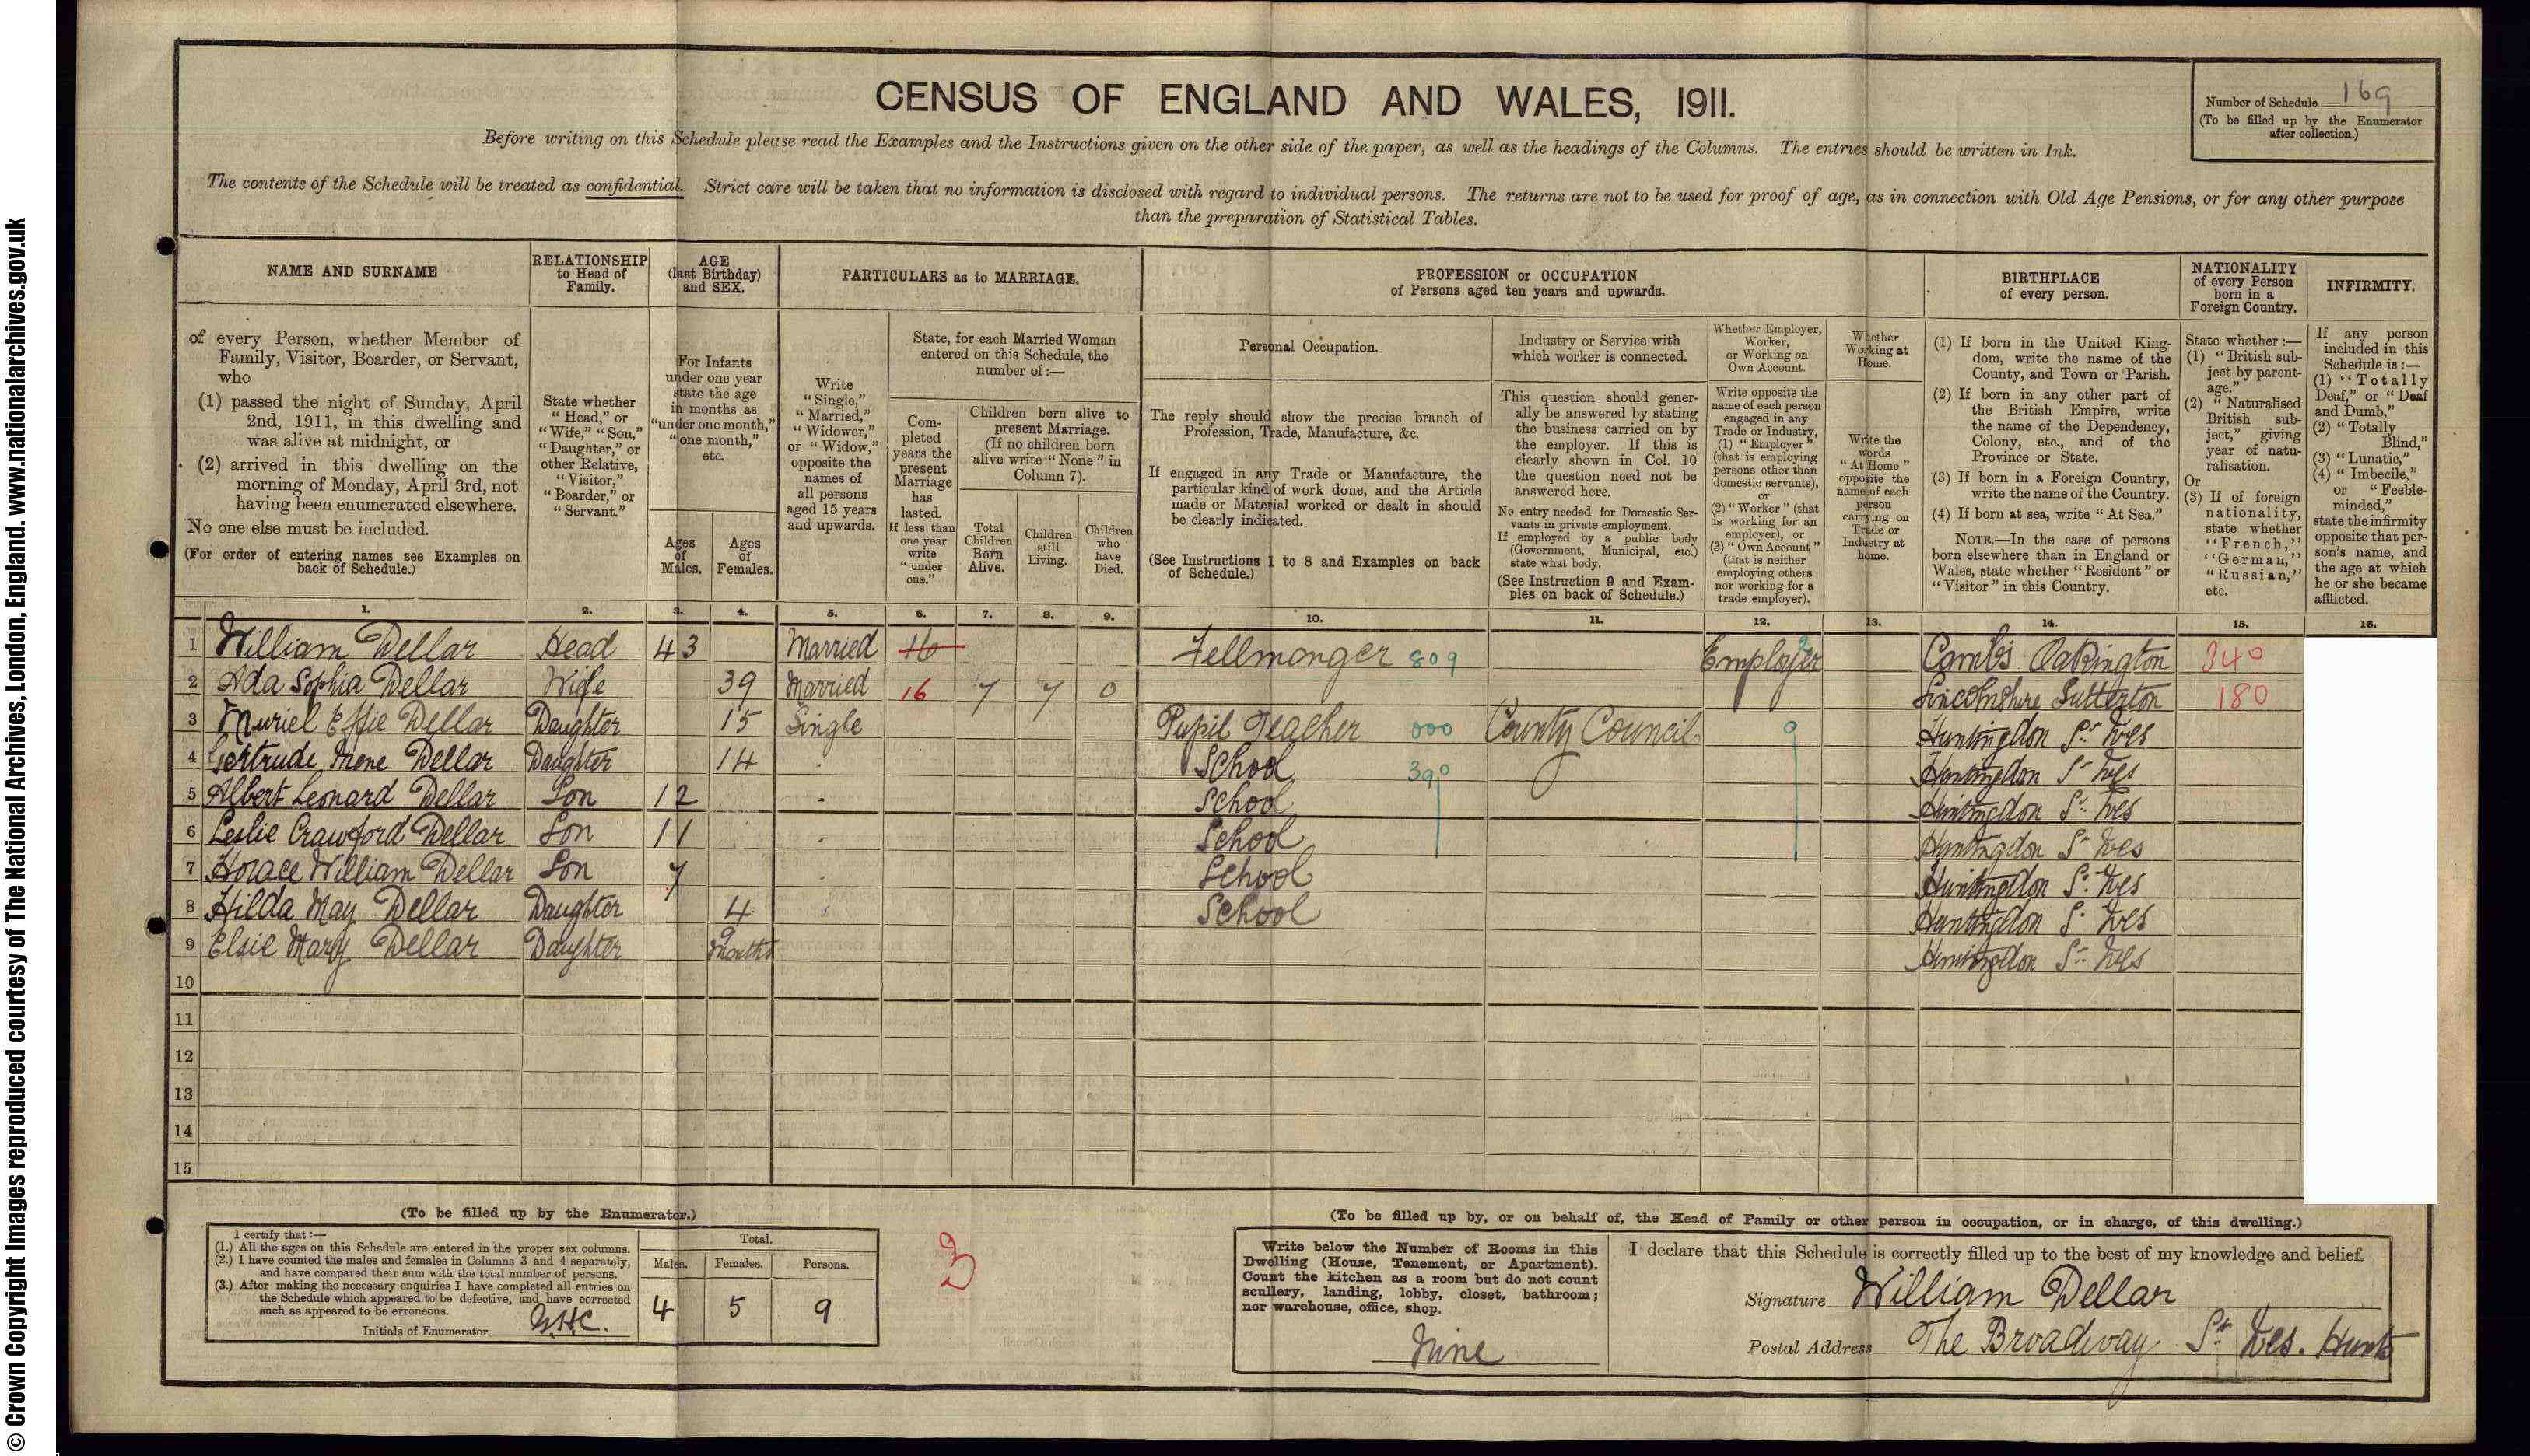 © Crown Copyright Images reproduced courtesy of The National Archives, London, England. www.nationalarchives.gov.uk
CENSUS OF ENGLAND AND WALES, 1911.
Number of Schedule 169
(To be filled up by the Enumerator
after collection.)
Before writing on this Schedule please read the Examples and the Instructions given on the other side of the paper, as well as the headings of the Columns. The entries should be written in Ink.
The contents of the Schedule will be treated as confidential. Strict care will be taken that no information is disclosed with regard to individual persons. The returns are not to be used for proof of age, as in connection with Old Age Pensions, or for any other purpose
than the preparation of Statistical Tables.
NAME AND SURNAME
of every Person, whether Member of
Family, Visitor, Boarder, or Servant,
who
(1) passed the night of Sunday, April
2nd, 1911, in this dwelling and
was alive at midnight, or
(2) arrived in this dwelling on the
morning of Monday, April 3rd, not
having been enumerated elsewhere.
No one else must be included.
(For order of entering names see Examples on
back of Schedule.)
1.
RELATIONSHIP
to Head of
Family.
State whether
"Head," or
"Wife," "Son,"
"Daughter," or
other Relative,
"Visitor,"
"Boarder," or
"Servant."
2.
AGE
(last Birthday)
and SEX.
For Infants
under one year
state the age
in months as
"under one month,"
"one month,"
etc.
Ages
of
Males.
3.
Ages
of
Females.
4.
PARTICULARS as to MARRIAGE.
Write
"Single,"
"Married,"
"Widower,"
or "Widow,"
opposite the
names of
all persons
aged 15 years
and upwards.
5.
State, for each Married Woman
entered on this Schedule, the
number of:—
Com-
pleted
years the
present
Marriage
has
lasted.
If less than
one year
write
"under
one."
6.
Children born alive to
present Marriage.
(If no children born
alive write "None" in
Column 7).
Total
Children
Born
Alive.
7.
Children
still
Living.
8.
Children
who
have
Died.
9.
PROFESSION or OCCUPATION
of Persons aged ten years and upwards.
Personal Occupation.
The reply should show the precise branch of
Profession, Trade, Manufacture, &c.
If engaged in any Trade or Manufacture, the
particular kind of work done, and the Article
made or Material worked or dealt in should
be clearly indicated.
(See Instructions 1 to 8 and Examples on back
of Schedule.)
10.
Industry or Service with
which worker is connected.
This question should gener-
ally be answered by stating
the business carried on by
the employer. If this is
clearly shown in Col. 10
the question need not be
answered here.
No entry needed for Domestic Ser-
vants in private employment.
If employed by a public body
(Government, Municipal, etc.)
state what body.
(See Instruction 9 and Exam-
ples on back of Schedule.)
11.
Whether Employer,
Worker,
or Working on
Own Account.
Write opposite the
name of each person
engaged in any
Trade or Industry,
(1) "Employer"
(that is employing
persons other than
domestic servants),
or
(2) "Worker" (that
is working for an
employer), or
(3) "Own Account"
(that is neither
employing others
nor working for a
trade employer).
12.
Whether
Working at
Home.
Write the
words
"At Home"
opposite the
name of each
person
carrying on
Trade or
Industry at
home.
13.
BIRTHPLACE
of every person.
(1) If born in the United King-
dom, write the name of the
County, and Town or Parish.
(2) If born in any other part of
the British Empire, write
the name of the Dependency,
Colony, etc., and of the
Province or State.
(3) If born in a Foreign Country,
write the name of the Country.
(4) If born at sea, write "At Sea."
NOTE.—In the case of persons
born elsewhere than in England or
Wales, state whether "Resident" or
"Visitor" in this Country.
14.
NATIONALITY
of every Person
born in a
Foreign Country.
State whether:—
(1) "British sub-
ject by parent-
age."
(2) "Naturalised
British sub-
ject," giving
year of natu-
ralisation.
Or
(3) If of foreign
nationality,
state whether
"French,"
"German,"
"Russian,"
etc.
15.
INFIRMITY.
If any person
included in this
Schedule is:—
(1) "Totally
Deaf," or "Deaf
and Dumb,"
(2) "Totally
Blind,"
(3) "Lunatic,"
(4) "Imbecile,"
or "Feeble-
minded,"
state the infirmity
opposite that per-
son's name, and
the age at which
he or she became
afflicted.
16.
1 William Dellar Head 43 Married 16 Fellmonger 809 Employer 9 Cambs Oakington 340
2 Ada Sophia Dellar Wife 39 Married 16 7 7 0 Lincolnshire Sutterton 180
3 Muriel Effie Dellar Daughter 15 Single Pupil Teacher 000 County Council 9 Huntingdon St Ives
4 Gertrude Irene Dellar Daughter 14 School 390 Huntingdon St Ives
5 Albert Leonard Dellar Son 12 School Huntingdon St Ives
6 Leslie Crawford Dellar Son 11 School Huntingdon St Ives
7 Horace William Dellar Son 7 School Huntingdon St Ives
8 Hilda May Dellar Daughter 4 School Huntingdon St Ives
9 Elsie Mary Dellar Daughter 9 months Huntingdon St Ives
10
11
12
13
14
15
(To be filled up by the Enumerator.)
I certify that:—
(1.) All the ages on this Schedule are entered in the proper sex columns.
(2.) I have counted the males and females in Columns 3 and 4 separately,
and have compared their sum with the total number of persons.
(3.) After making the necessary enquiries I have completed all entries on
the Schedule which appeared to be defective, and have corrected
such as appeared to be erroneous.
Initials of Enumerator
Total.
Males. Females. Persons.
4 5 9
3
(To be filled up by, or on behalf of, the Head of Family or other person in occupation, or in charge, of this dwelling.)
Write below the Number of Rooms in this
Dwelling (House, Tenement, or Apartment).
Count the kitchen as a room but do not count
scullery, landing, lobby, closet, bathroom;
nor warehouse, office, shop.
Nine
I declare that this Schedule is correctly filled up to the best of my knowledge and belief.
Signature William Dellar
Postal Address The Broadway St Ives. Hunts